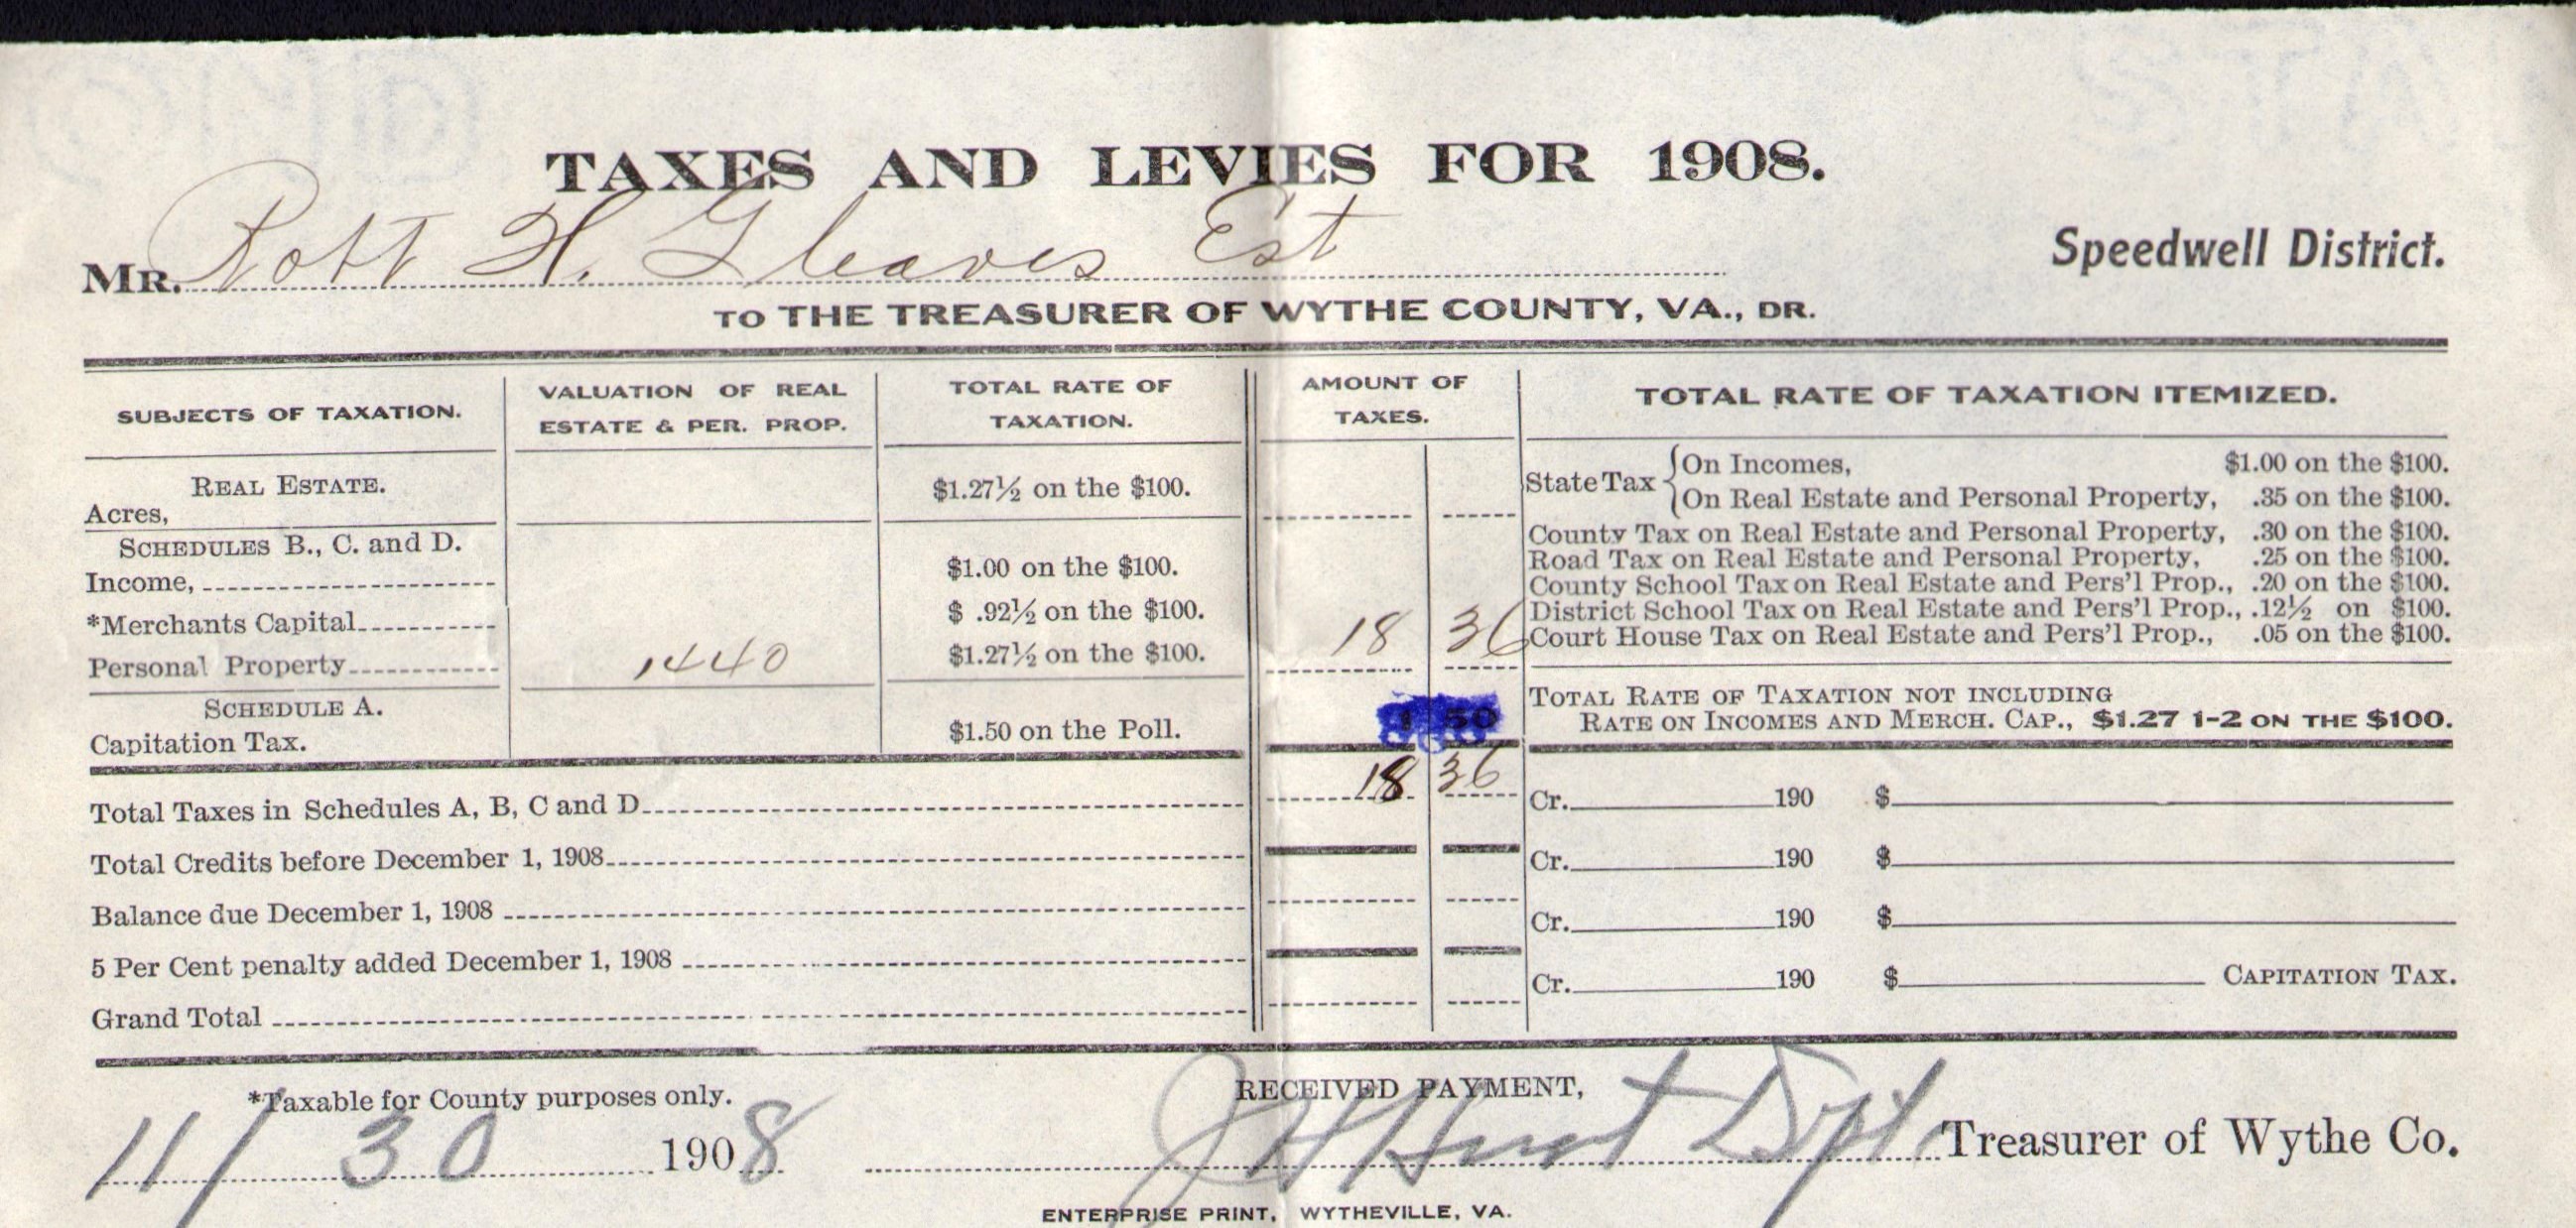 TAXES AND LEVIES FOR 1908.
MR. Robt H. Gleaves Est
Speedwell District.
TO THE TREASURER OF WYTHE COUNTY, VA., DR.
SUBJECTS OF TAXATION. VALUATION OF REAL ESTATE & PER. PROP. TOTAL RATE OF TAXATION. AMOUNT OF TAXES. TOTAL RATE OF TAXATION ITEMIZED.
REAL ESTATE. $1.27½ on the $100.
Acres,
SCHEDULES B., C. and D.
Income, $1.00 on the $100.
*Merchants Capital $ .92½ on the $100.
Personal Property 1440 $1.27½ on the $100. 18 36
SCHEDULE A.
Capitation Tax. $1.50 on the Poll. 1 50
State Tax On Incomes, $1.00 on the $100.
On Real Estate and Personal Property, .35 on the $100.
County Tax on Real Estate and Personal Property, .30 on the $100.
Road Tax on Real Estate and Personal Property, .25 on the $100.
County School Tax on Real Estate and Pers'l Prop., .20 on the $100.
District School Tax on Real Estate and Pers'l Prop., .12½ on $100.
Court House Tax on Real Estate and Pers'l Prop., .05 on the $100.
TOTAL RATE OF TAXATION NOT INCLUDING
RATE ON INCOMES AND MERCH. CAP., $1.27 1-2 ON THE $100.
Total Taxes in Schedules A, B, C and D 18 36
Total Credits before December 1, 1908
Balance due December 1, 1908
5 Per Cent penalty added December 1, 1908
Grand Total
Cr. 190 $
Cr. 190 $
Cr. 190 $
Cr. 190 $ CAPITATION TAX.
*Taxable for County purposes only.
RECEIVED PAYMENT,
11/30 1908 Hurst Dpt Treasurer of Wythe Co.
ENTERPRISE PRINT, WYTHEVILLE, VA.